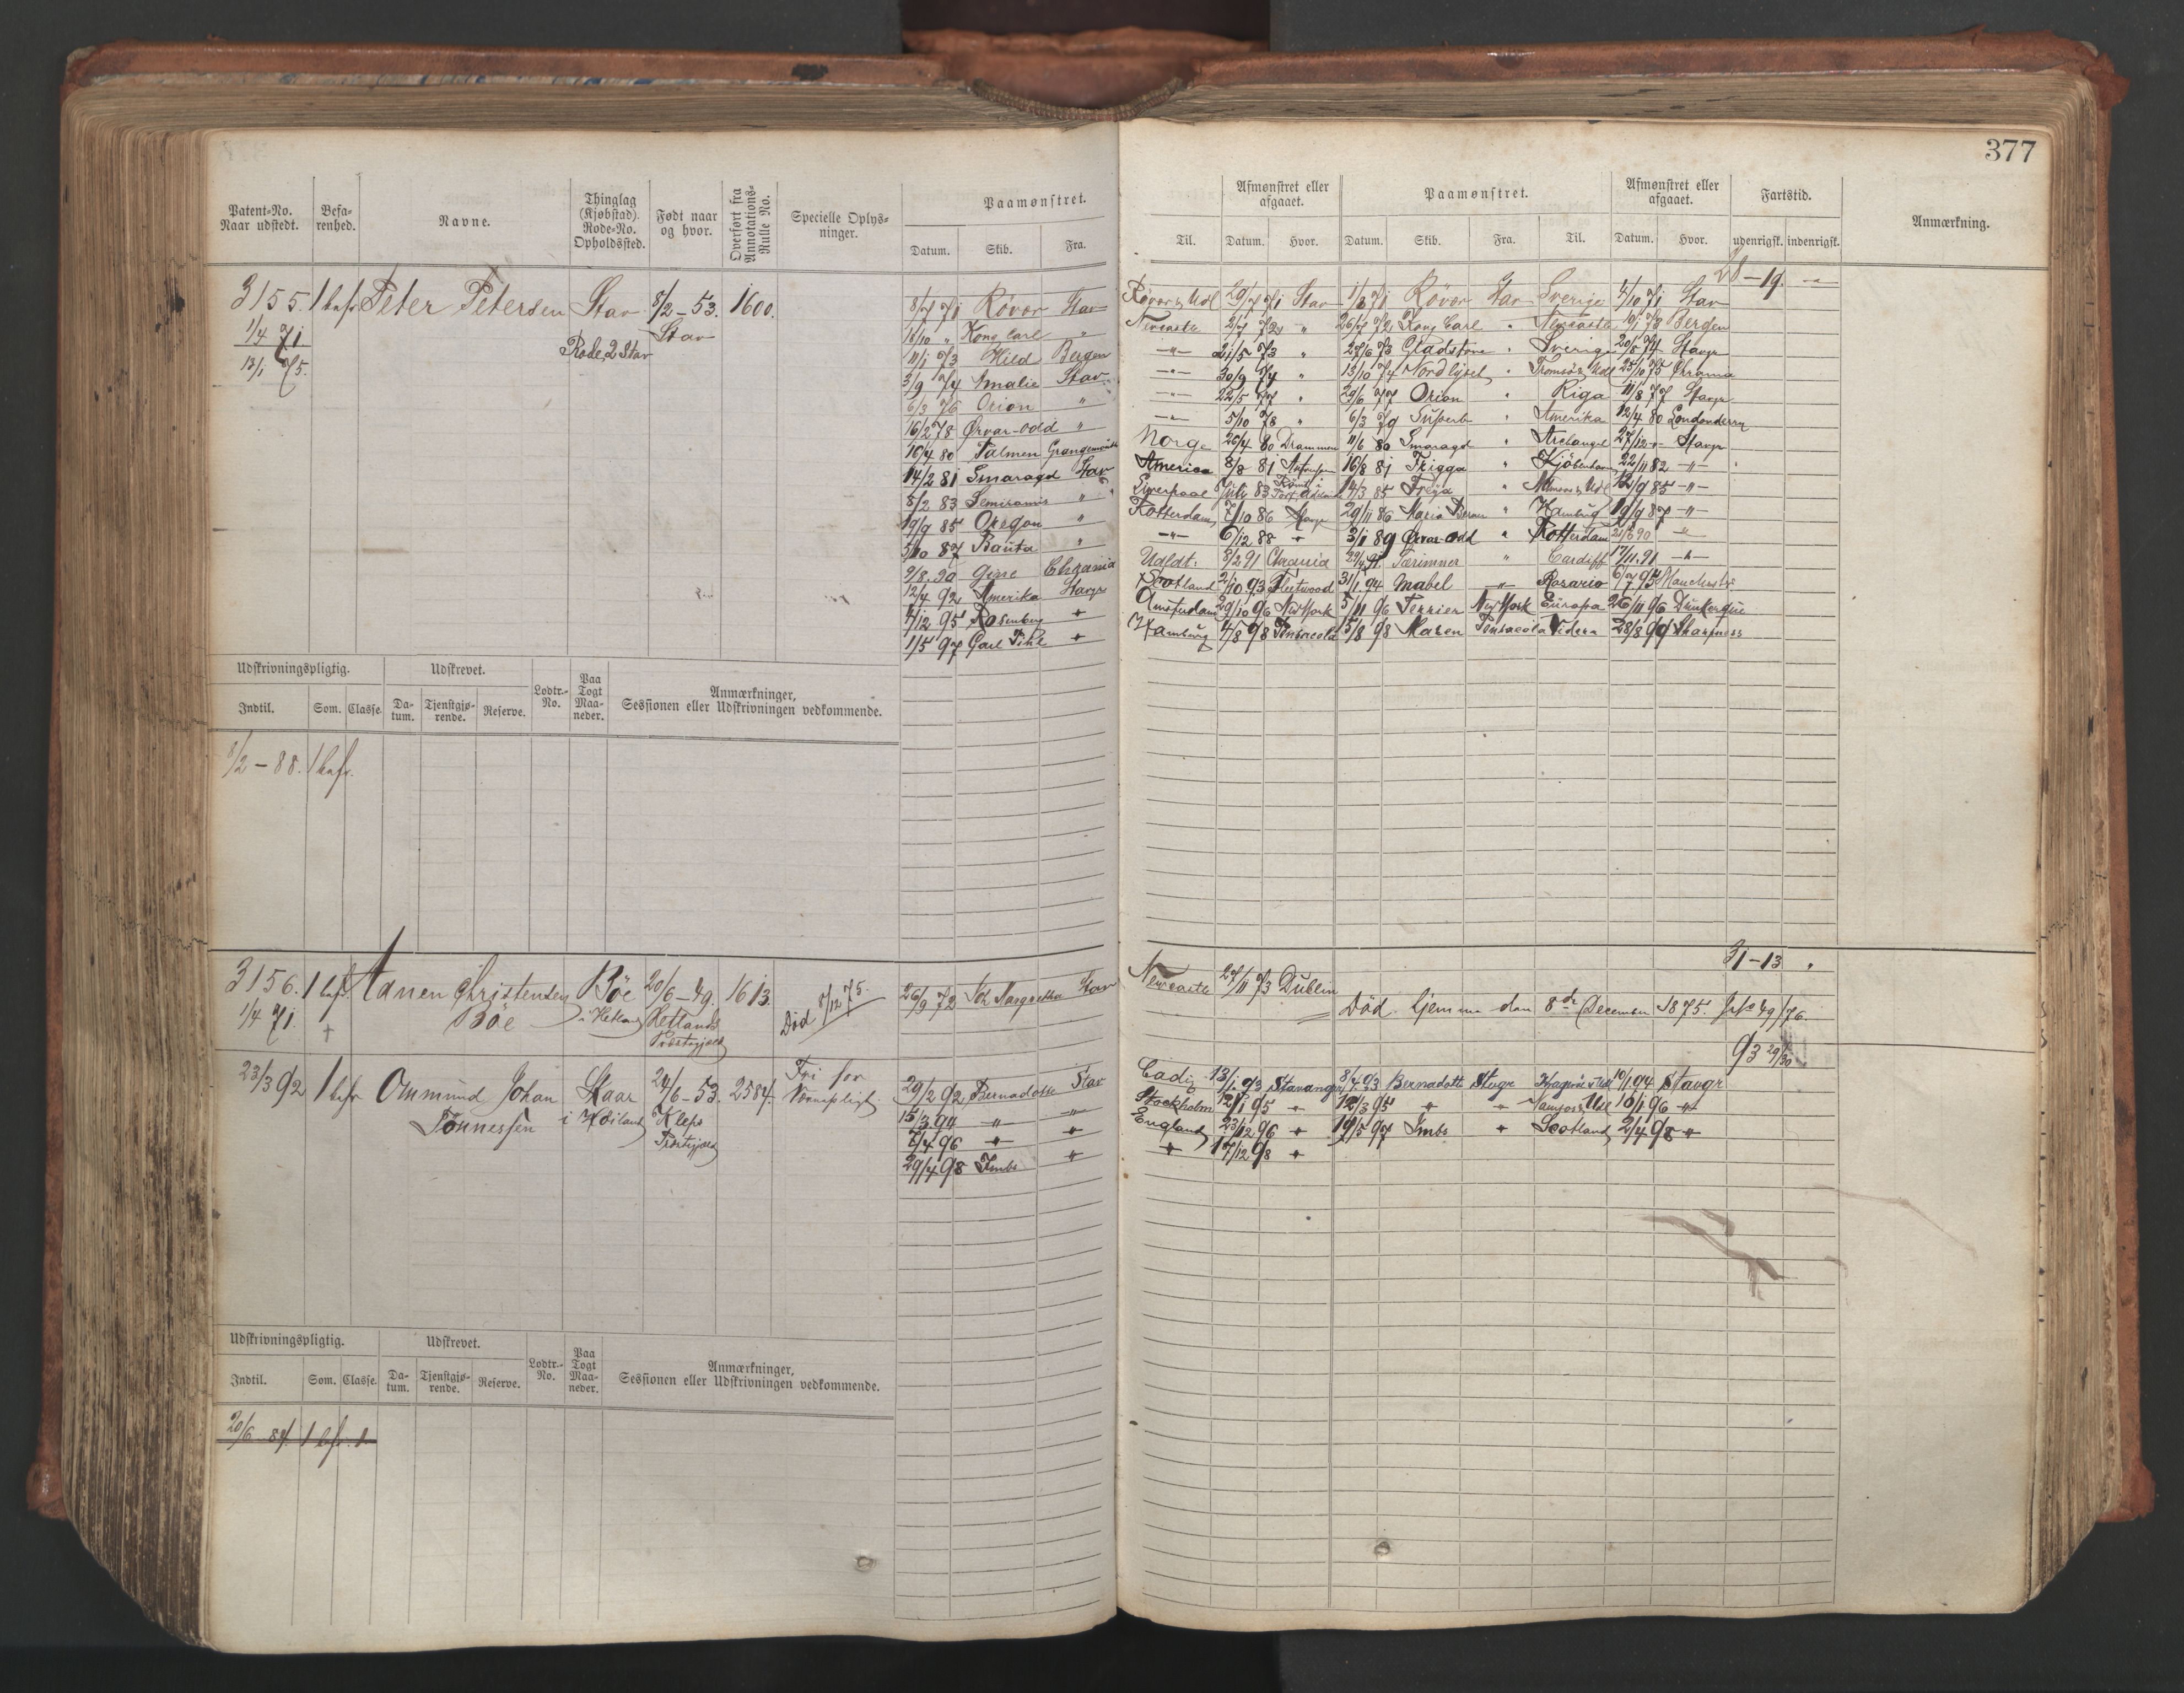 377
Patent-No. Naar udstedt. Befa-renhed. Navne. Thinglag (Kjøbstad). Rode-No. Opholdssted. Født naar og hvor. Overført fra Annotations-Rulle No. Specielle Oplys-ninger. Paamønstret. Datum. Skib. Fra.
Til. Afmønstret eller afgaaet. Datum. Hvor. Paamønstret. Datum. Skib. Fra. Til. Afmønstret eller afgaaet. Datum. Hvor. Fartstid. udenrigsk. indenrigsk. Anmærkning.
28-19. -"-
3155. 1 bef. Peter Petersen Stav 8/2-53. 1600.
1/4 71 Stav
13/1 75. Rode 2 Stav
8/7 71 Røvær Stav 29/7 71 Stav 1/8 71 Røvær Stav Sverige 4/10 71 Stav
18/10 " Kong Carl " Newcastle 2/7 72 " 26/7 72 Kong Carl " Newcastle 10/1 73 Bergen
11/1 73 Hild Bergen -"- 21/5 73 " 27/6 73 Gladstone " Sverige 20/8 74 Stavgr
3/9 74 Amalie Stav -"- 30/9 74 " 13/10 74 Nordlyset " Tromsø & Udl 25/10 75 Chrania
6/3 76 Orion " -"- 22/5 77 " 29/6 77 Orion " Riga 11/8 77 Stavgr
16/2 78 Ørvar-Odd " -"- 5/10 78 " 6/3 79 Superb " Amerika 12/4 80 Londonderry
16/4 80 Palmen Grangemouth Norge 26/4 80 Drammen 11/6 80 Smaragd " Archangel 27/12 -"- Stavgr
14/2 81 Smaragd Stav America 8/8 81 16/8 81 Frigga " Kjöbenhavn 22/11 82 -"-
8/2 83 Semiramis " Liverpool 83 14/3 85 Freya " 12/9 85 -"-
19/9 85 Oregon " Rotterdam 7/10 86 Stavgr 29/11 86 Maria " Hamburg 19/9 87 -"-
5/10 87 Bauta " -"- 6/12 88 " 3/1 89 Ørvar-Odd " Rotterdam 90 -"-
9/8 90 Gine Chrania Udldt. 8/2 91 Chrania 91 Særimner " Cardiff 17/11 91 -"-
12/4 92 Amerika Stavgr Scotland 2/10 93 Fleetwood 31/1 94 Mabel -"- Rosario 6/7 95
4/12 95 Rosenberg " Amsterdam 29/10 96 NewYork 5/11 96 Terrier NewYork Europa 26/11 96 Dunkerque
1/5 97 Carl Pihl " Hamburg 4/8 98 Pensacola 15/8 98 Maren Pensacola 28/8 99 Sharpness
Udskrivningspligtig. Udskrevet. Lodtr.-No. Paa Togt Maa-neder. Anmærkninger, Sessionen eller Udskrivningen vedkommende.
Indtil. Som. Classe. Da-tum. Tjenstgjø-rende. Reserve.
8/2-88. 1 bef.
31-13
3156. 1 bef. Aanen Christensen Böe 20/6-49. 1613. Död 8/12 75. 26/9 72 Margretha Stav Newcastle 27/11 73 Dublin
1/4 71. † Böe i Hetland Hetlands Præstegjæld
Död hjemme den 8de December 1875. 49/76.
93 29/30
23/3 92 1 bef. Ommund Johan Skaar 24/6-53. 2584. Fri for 29/2 92 Bernadotte Stav Cadiz 13/1 93 Stavanger 8/4 93 Bernadotte Stavgr Kragerö & Udl 10/1 94 Stavgr
Tönnessen i Höiland Klepp Værnepligt. 15/3 94 -"- -"- Stockholm 12/1 95 " 12/3 95 " " Namsos & Udl 16/1 96 "
Præstegjæld 7/4 96 " " England 23/12 96 " 19/5 97 Imbs " Scotland 2/4 98 "
29/4 98 Imbs " " 17/12 98 "
Udskrivningspligtig. Udskrevet. Lodtr.-No. Paa Togt Maa-neder. Anmærkninger, Sessionen eller Udskrivningen vedkommende.
Indtil. Som. Classe. Da-tum. Tjenstgjø-rende. Reserve.
20/6 84. 1 bef. 1.